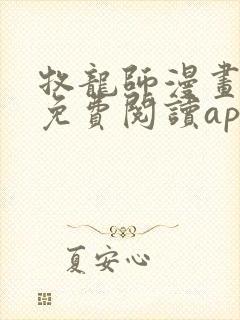 牧龍師漫畫
免費閱讀ap
夏安心